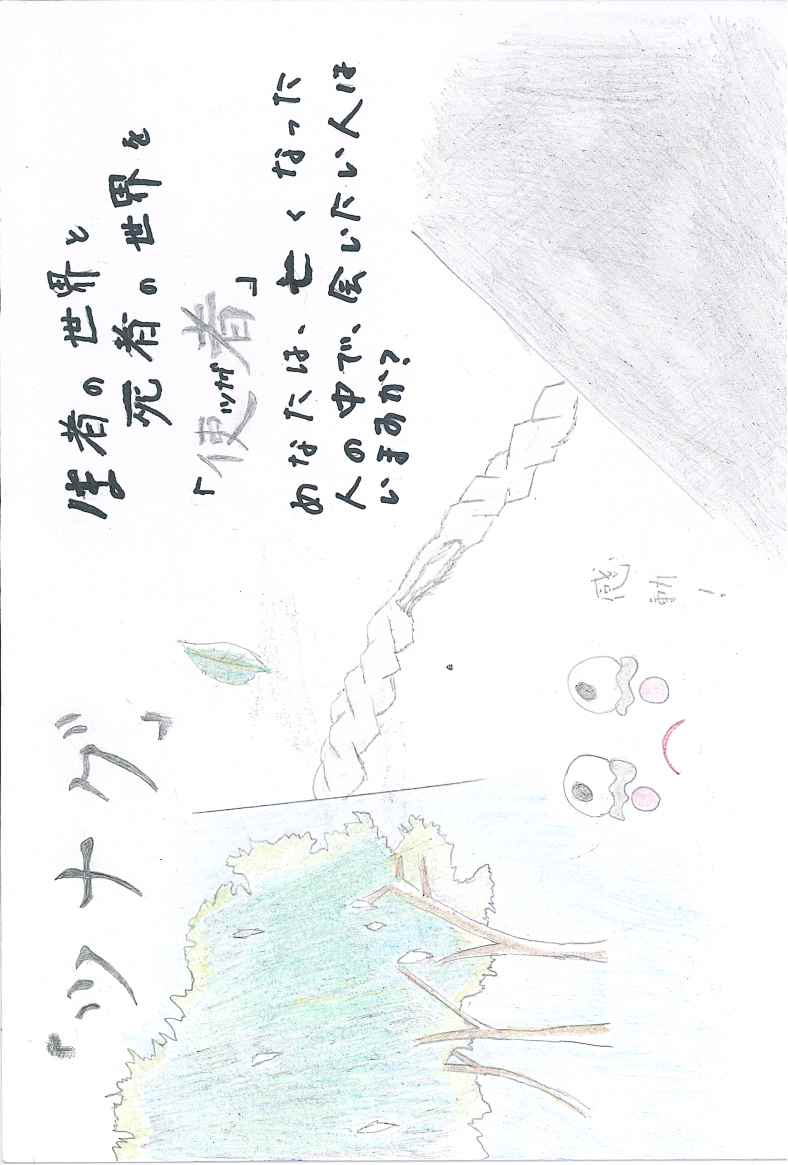 『ツナグ』
生者の世界と
死者の世界を
「使ツナグ者」
あなたは、亡くなった
人の中で、会いたい人は
いますか?
感動!